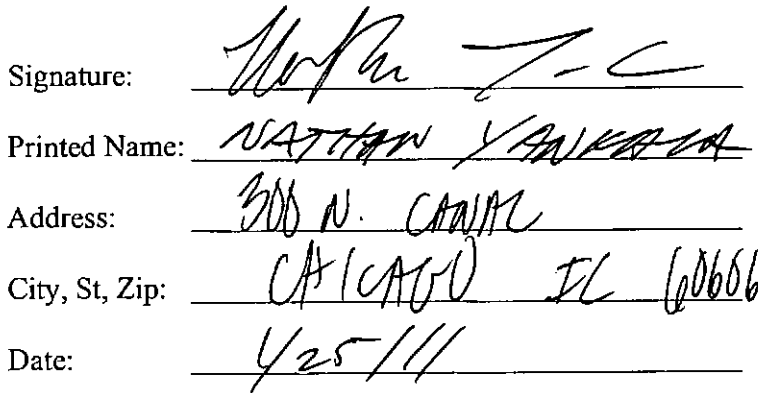 Signature:
Printed Name: NATHAN
Address: 300 N. CANAL
City, St, Zip: CHICAGO IL 60606
Date: 1/25/11